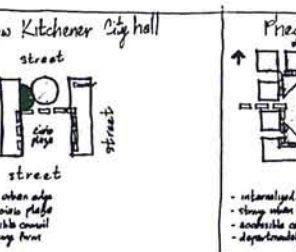 Kitchener City hall
street
civic
plaza
street
street
urban edge
civic plaza
council
form
Phe
- internalized
- strong urban
- accessible co
- departmental